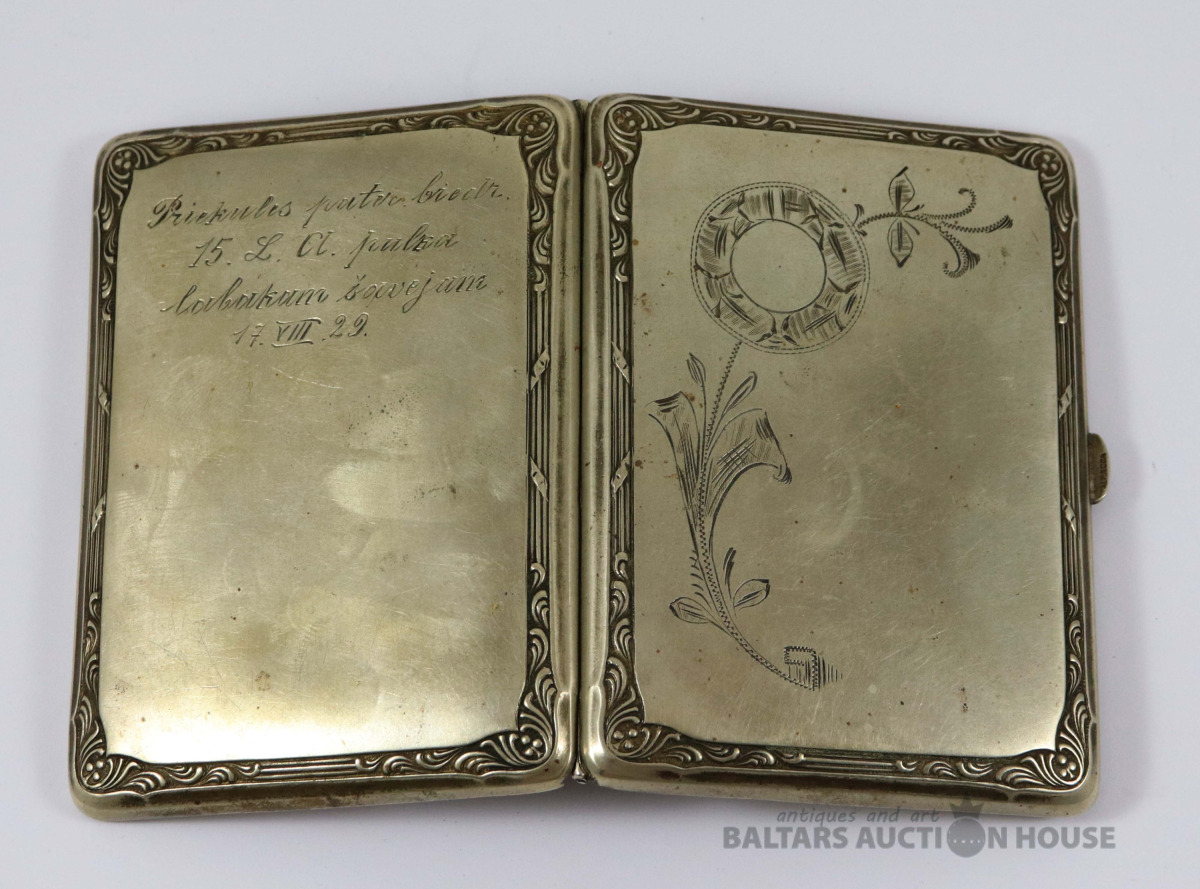 Priekules patēr. biedr.
15. L. A. pulka
labākam šāvējam
17. VIII. 29.
antiques and art
BALTARS AUCTION HOUSE